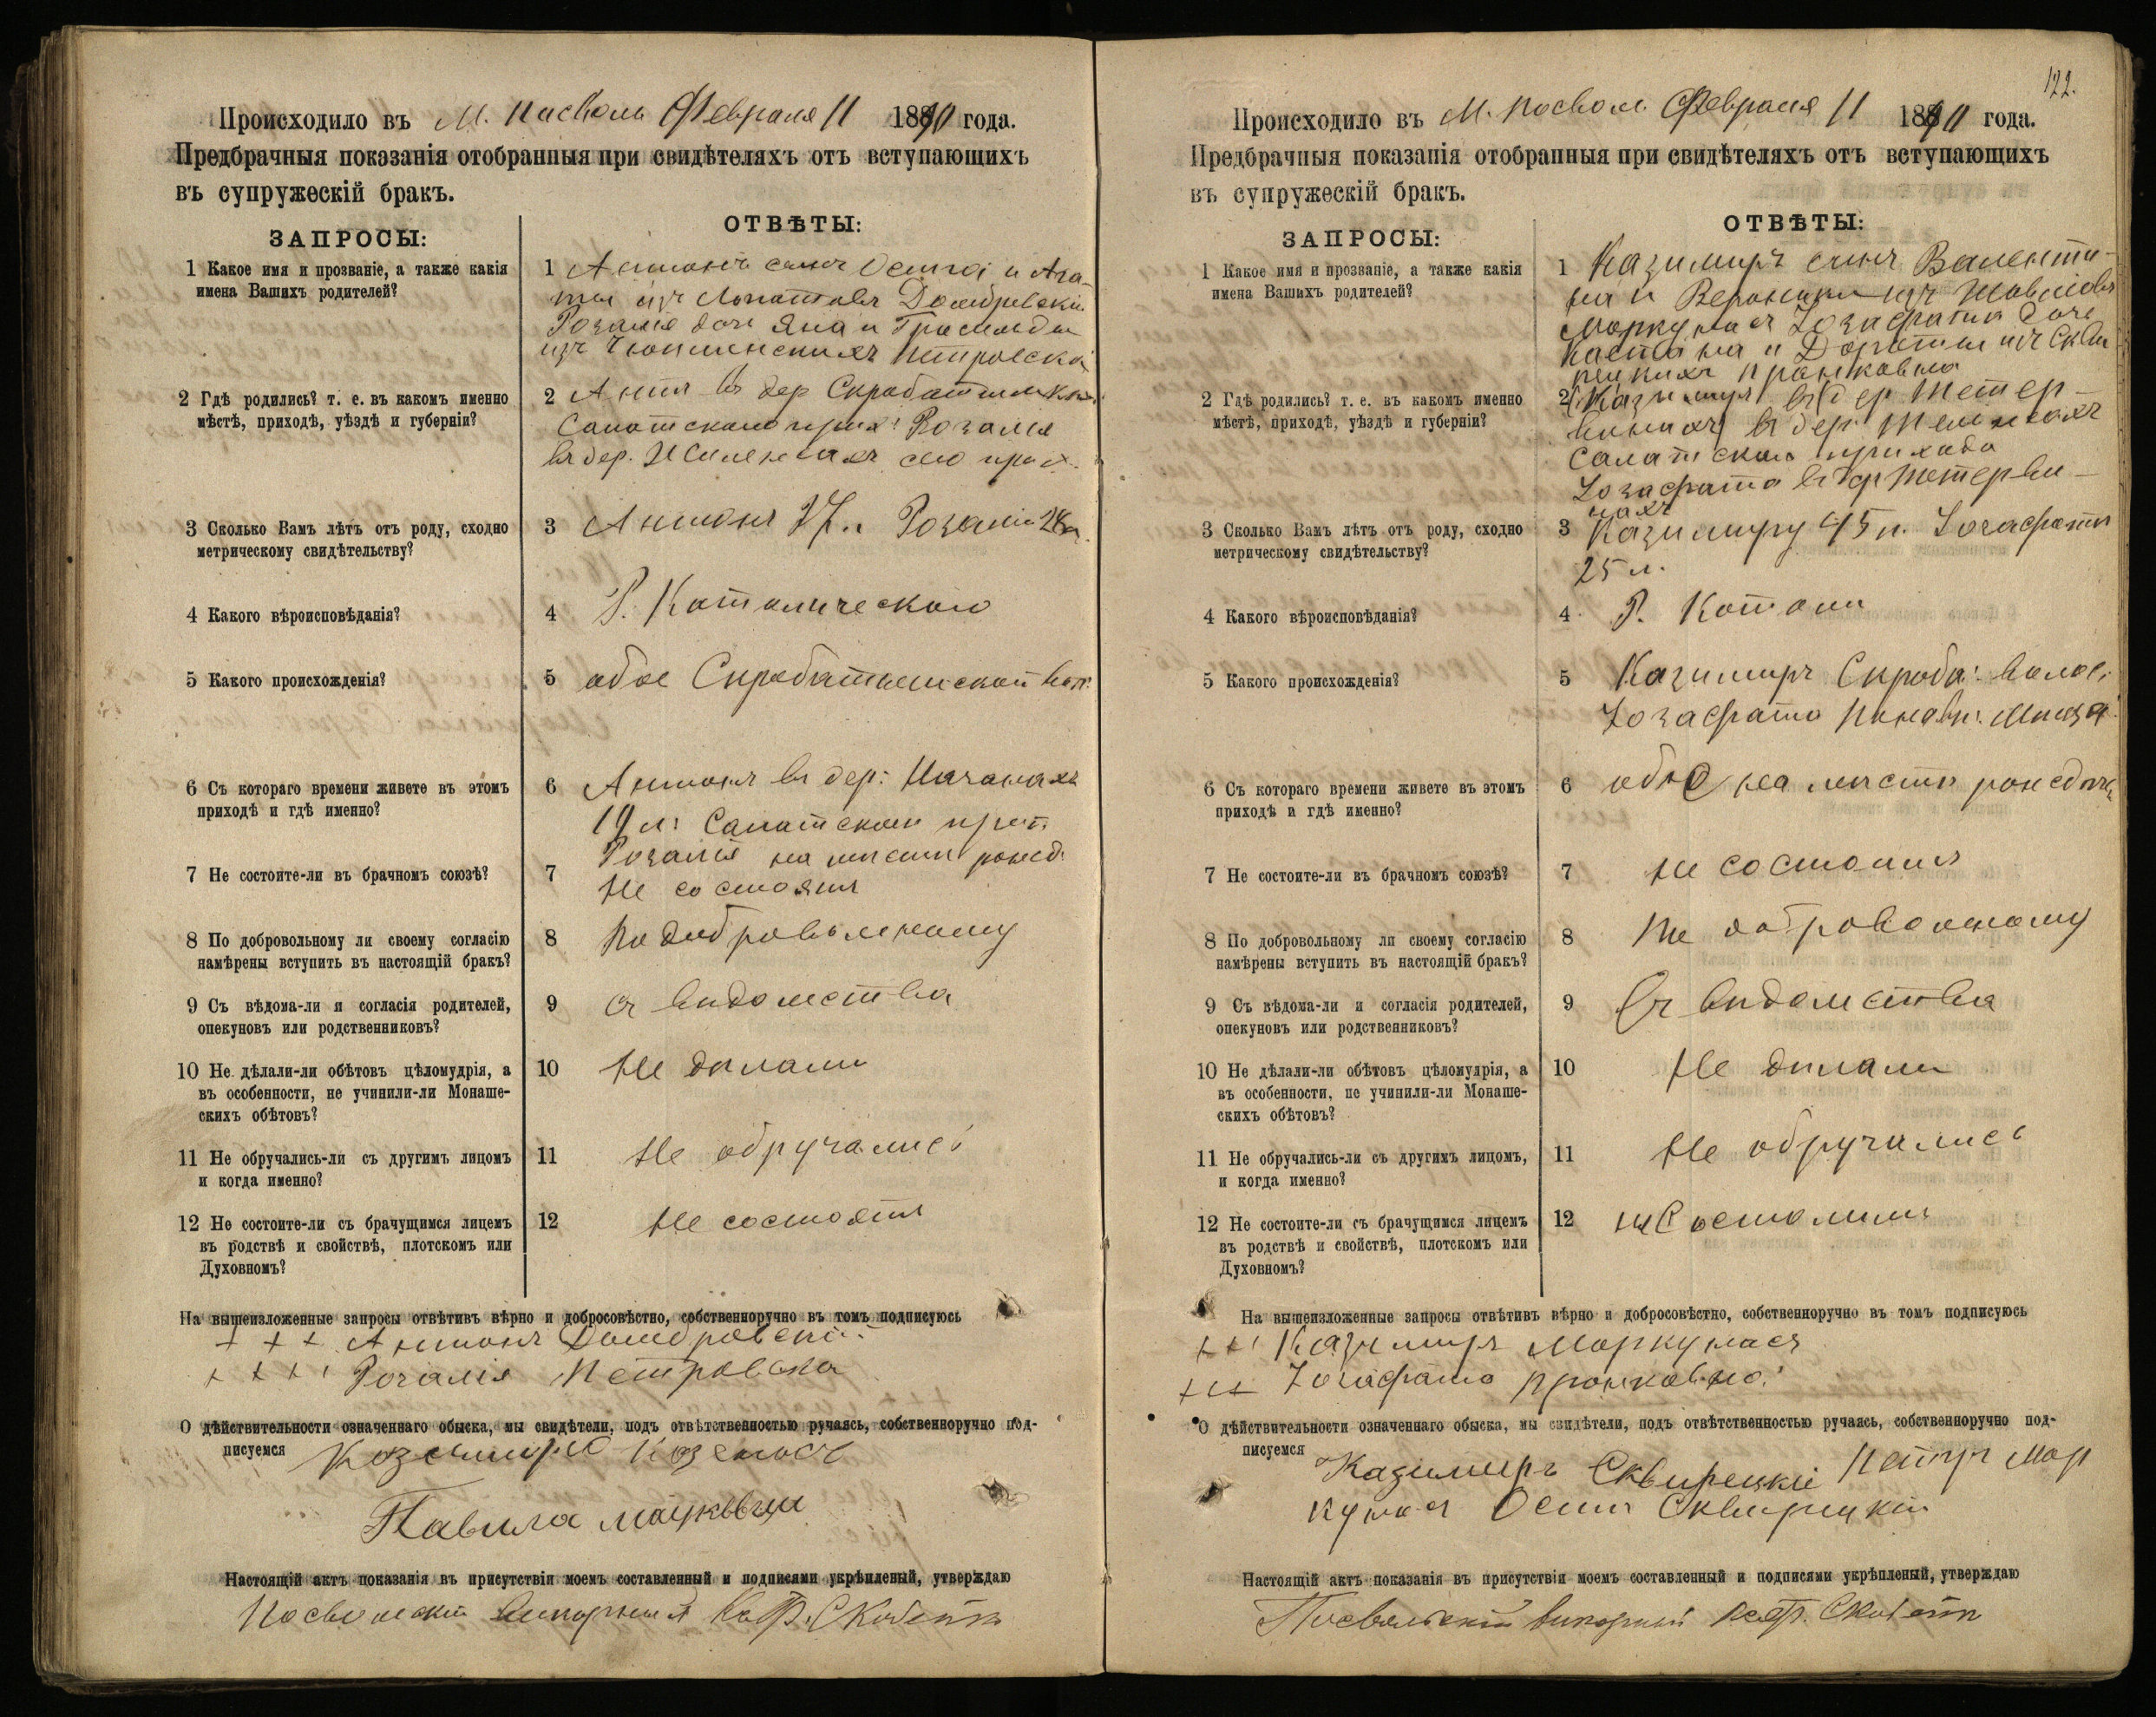 Происходило въ М. Посволь Февраля 11 1890 года.
Предбрачныя показанія отобранныя при свидѣтеляхъ отъ вступающихъ
въ супружескій бракъ.
ЗАПРОСЫ:
ОТВѢТЫ:
1 Какое имя и прозваніе, а также какія
имена Вашихъ родителей?
1 Антонъ сынъ Осипа и Ага-
ты изъ Домбровскій
Розалія дочь Яна и
изъ Петровска
2 Гдѣ родились? т. е. въ какомъ именно
мѣстѣ, приходѣ, уѣздѣ и губерніи?
2 Антон въ дер
Салатскаго прих: Розалія
въ дер. прих.
3 Сколько Вамъ лѣтъ отъ роду, сходно
метрическому свидѣтельству?
3 Антонъ Розалія
4 Какого вѣроисповѣданія?
4 Р. Католическаго
5 Какого происхожденія?
5 обое Скробатишской вол.
6 Съ котораго времени живете въ этомъ
приходѣ и гдѣ именно?
6 Антонъ въ дер:
19 л: Салатскаго прих.
Розалія на мѣстѣ рожед:
7 Не состоите-ли въ брачномъ союзѣ?
7 Не состоятъ
8 По добровольному ли своему согласію
намѣрены вступить въ настоящій бракъ?
8 По добровольному
9 Съ вѣдома-ли и согласія родителей,
опекуновъ или родственниковъ?
9 съ вѣдомства
10 Не дѣлали-ли обѣтовъ цѣломудрія, а
въ особенности, не учинили-ли Монаше-
скихъ обѣтовъ?
10 Не дѣлали
11 Не обручались-ли съ другимъ лицомъ
и когда именно?
11 Не обручались
12 Не состоите-ли съ брачущимся лицемъ
въ родствѣ и свойствѣ, плотскомъ или
Духовномъ?
12 Не состоятъ
На вышеизложенные запросы отвѣтивъ вѣрно и добросовѣстно, собственноручно въ томъ подписуюсь
+ + + Антонъ Домбровскій
+ + + Розалія Петровска
О дѣйствительности означеннаго обыска, мы свидѣтели, подъ отвѣтственностью ручаясь, собственноручно под-
писуемся
Павила
Настоящій актъ показанія въ присутствіи моемъ составленный и подписями укрѣпленый, утверждаю
Посвольскій викарный
122.
Происходило въ М. Посволь Февраля 11 1890 года.
Предбрачныя показанія отобранныя при свидѣтеляхъ отъ вступающихъ
въ супружескій бракъ.
ЗАПРОСЫ:
ОТВѢТЫ:
1 Какое имя и прозваніе, а также какія
имена Вашихъ родителей?
1 Казимиръ сынъ Валенти-
на и Вероники изъ
Маркунасъ Іозафата дочь
и Дороты изъ Скви
рецкихъ Пранковна
2 Гдѣ родились? т. е. въ какомъ именно
мѣстѣ, приходѣ, уѣздѣ и губерніи?
2 Казимиръ въ дер Тетер-
винахъ въ дер.
Салатскаго прихода
Іозафата въ дер Тетерви-
нахъ
3 Сколько Вамъ лѣтъ отъ роду, сходно
метрическому свидѣтельству?
3 Казимиру 45 л. Іозафаты
25 л.
4 Какого вѣроисповѣданія?
4 Р. Катол
5 Какого происхожденія?
5 Казимиръ Скроба: волос.
Іозафата
6 Съ котораго времени живете въ этомъ
приходѣ и гдѣ именно?
6 обое на мѣстѣ
7 Не состоите-ли въ брачномъ союзѣ?
7 Не состоятъ
8 По добровольному ли своему согласію
намѣрены вступить въ настоящій бракъ?
8 По добровольному
9 Съ вѣдома-ли и согласія родителей,
опекуновъ или родственниковъ?
9 Съ вѣдомства
10 Не дѣлали-ли обѣтовъ цѣломудрія, а
въ особенности, не учинили-ли Монаше-
скихъ обѣтовъ?
10 Не дѣлали
11 Не обручались-ли съ другихъ лицомъ,
и когда именно?
11 Не обручались
12 Не состоите-ли съ брачущимся лицемъ
въ родствѣ и свойствѣ, плотскомъ или
Духовномъ?
12 не состоятъ
На вышеизложенные запросы отвѣтивъ вѣрно и добросовѣстно, собственноручно въ томъ подписуюсь
+ + Казимиръ Маркунасъ
+ + + Іозафата Пранковна
О дѣйствительности означеннаго обыска, мы свидѣтели, подъ отвѣтственностью ручаясь, собственноручно под-
писуемся
Казимиръ Сквирецкій Петръ Мар
кунас Осип Сквирецкій
Настоящій актъ показанія въ присутствіи моемъ составленный и подписями укрѣпленый, утверждаю
Посвольскій викарный